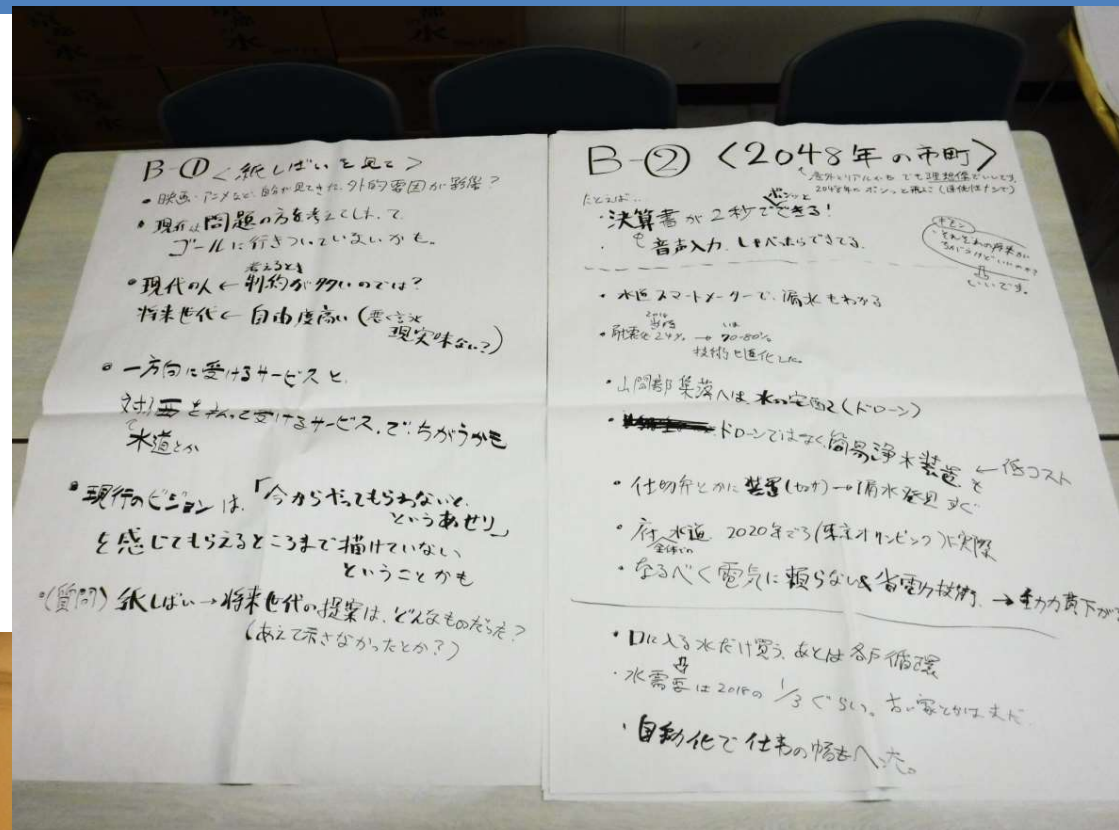 B-① <紙しばいを見て>
・映画・アニメなど、自分が見てきた、外的要因が影響?
・現在は問題の方を考えてしまって
ゴールに行きついていないかも。
考えるとき
・現代の人 ← 制約が多いのでは?
将来世代 ← 自由度高い (悪く言うと
現実味ない?)
・一方向に受けるサービスと、
対価を払って受けるサービス、で、ちがうかも
水道とか
・現行のビジョンは、「今からやってもらわないと、
というあせり」
を感じてもらえるところまで描けていない
ということかも
・(質問) 紙しばい → 将来世代の提案は、どんなものだった?
(あえて示さなかったとか?)
B-② <2048年の市町>
意外とリアルかも でも理想像でいいです。
2048年に ポンッと飛ぶ (連続性ナシで)
たとえば…
ポンッと
・決算書が2秒でできる!
音声入力、しゃべったらできてる。
それぞれの将来が
ちがうけどいいのか?
いいです。
・水道スマートメーターで、漏水もわかる
いま
・耐震化24% → 90-80%
技術も進化した。
・山間部集落へは、水の宅配で (ドローン)
・ドローンではなく、簡易浄水装置も ← 低コスト
・仕切弁とかに装置 (センサ) → 漏水発見 すぐ
・府水道 2020年ごろ (東京オリンピック) に実際
全体での
・なるべく電気に頼らない&省電力技術、→ 動力費下がる
・口に入る水だけ買う、あとは各戸循環
・水需要は2018の 1/3 ぐらい。古い家とかはまだ
・自動化で仕事の幅もへった。